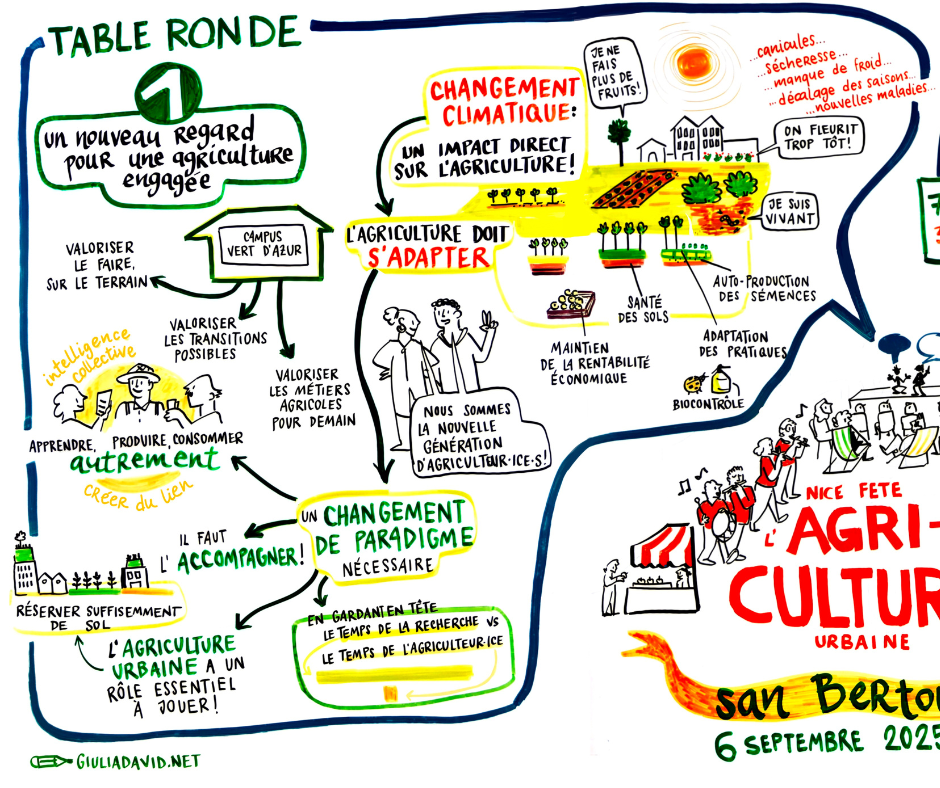 TABLE RONDE
1
un nouveau regard
pour une agriculture
engagée
CAMPUS
VERT D'AZUR
VALORISER
LE FAIRE,
SUR LE TERRAIN
VALORISER
LES TRANSITIONS
POSSIBLES
VALORISER
LES MÉTIERS
AGRICOLES
POUR DEMAIN
intelligence
collective
APPRENDRE, PRODUIRE, CONSOMMER
autrement
créer du lien
CHANGEMENT
CLIMATIQUE:
UN IMPACT DIRECT
SUR L'AGRICULTURE!
JE NE
FAIS
PLUS DE
FRUITS!
...canicules...
...sécheresse...
...manque de froid...
...décalage des saisons...
...nouvelles maladies...
ON FLEURIT
TROP TÔT!
JE SUIS
VIVANT
L'AGRICULTURE DOIT
S'ADAPTER
MAINTIEN
DE LA RENTABILITÉ
ÉCONOMIQUE
SANTÉ
DES SOLS
AUTO-PRODUCTION
DES SÉMENCES
ADAPTATION
DES PRATIQUES
BIOCONTRÔLE
NOUS SOMMES
LA NOUVELLE
GÉNÉRATION
D'AGRICULTEUR·ICE·S!
UN CHANGEMENT
DE PARADIGME
NÉCESSAIRE
IL FAUT
L'ACCOMPAGNER!
RÉSERVER SUFFISEMMENT
DE SOL
L'AGRICULTURE
URBAINE A UN
RÔLE ESSENTIEL
À JOUER!
EN GARDANT EN TÊTE
LE TEMPS DE LA RECHERCHE VS
LE TEMPS DE L'AGRICULTEUR·ICE
NICE FETE
L'AGRI-
CULTUR
URBAINE
san Berto
6 SEPTEMBRE 2025
GIULIADAVID.NET